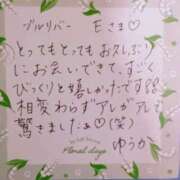 ブルリバー Eさま♡
とってもとってもお久しぶり
にお会いできて、すごく
びっくりと嬉しかったです
相変わらずアレがアレで
驚きましたぁ♡(笑)
ゆうか
Floral days